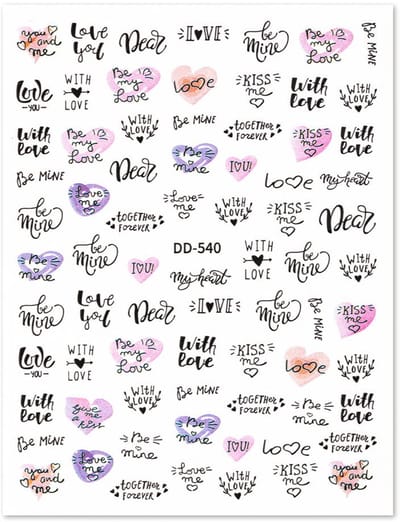 you and me
Love you
Dear
I LOVE
be Mine
Be my Love
Be MINE
Love -YOU-
WITH LOVE
Be my Love
Love
KISS me
With Love
With Love
With love
Be my Love
With LOVE
Be MINE
toGETHER FOREVER
KISS me
With love
Be MINE
Love me
Dear
Be mine
I♡U!
Love
My heart
be Mine
toGETHER FOREVER
Love me
With LOVE
KISS me
Dear
Be mine
be Mine
I♡U!
DD-540
My heart
WITH LOVE
be Mine
With LOVE
be Mine
Love you
Dear
I LOVE
be Mine
Be MINE
KISS me
Love -YOU-
WITH LOVE
Be my Love
With Love
KISS me
Love
With LOVE
With love
Give me a kiss
With LOVE
Be MINE
toGETHER FOREVER
Be mine
With love
Be MINE
Love me
Be mine
Be mine
I♡U!
Love
My heart
you and me
toGETHER FOREVER
Love me
With LOVE
KISS me
you and me